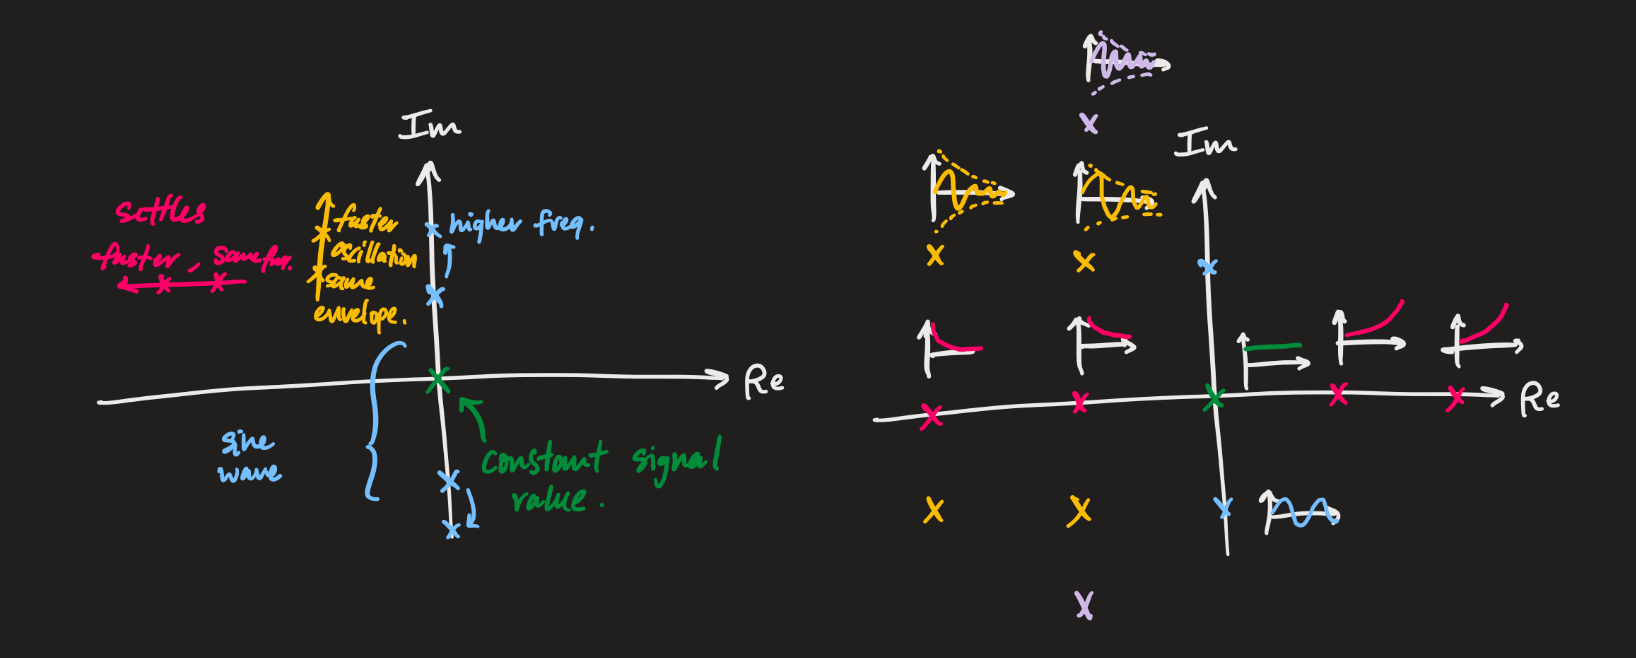 Im
settles
faster, same freq.
faster
oscillation
same
envelope.
higher freq.
Re
sine
wave
constant signal
value.
Im
Re